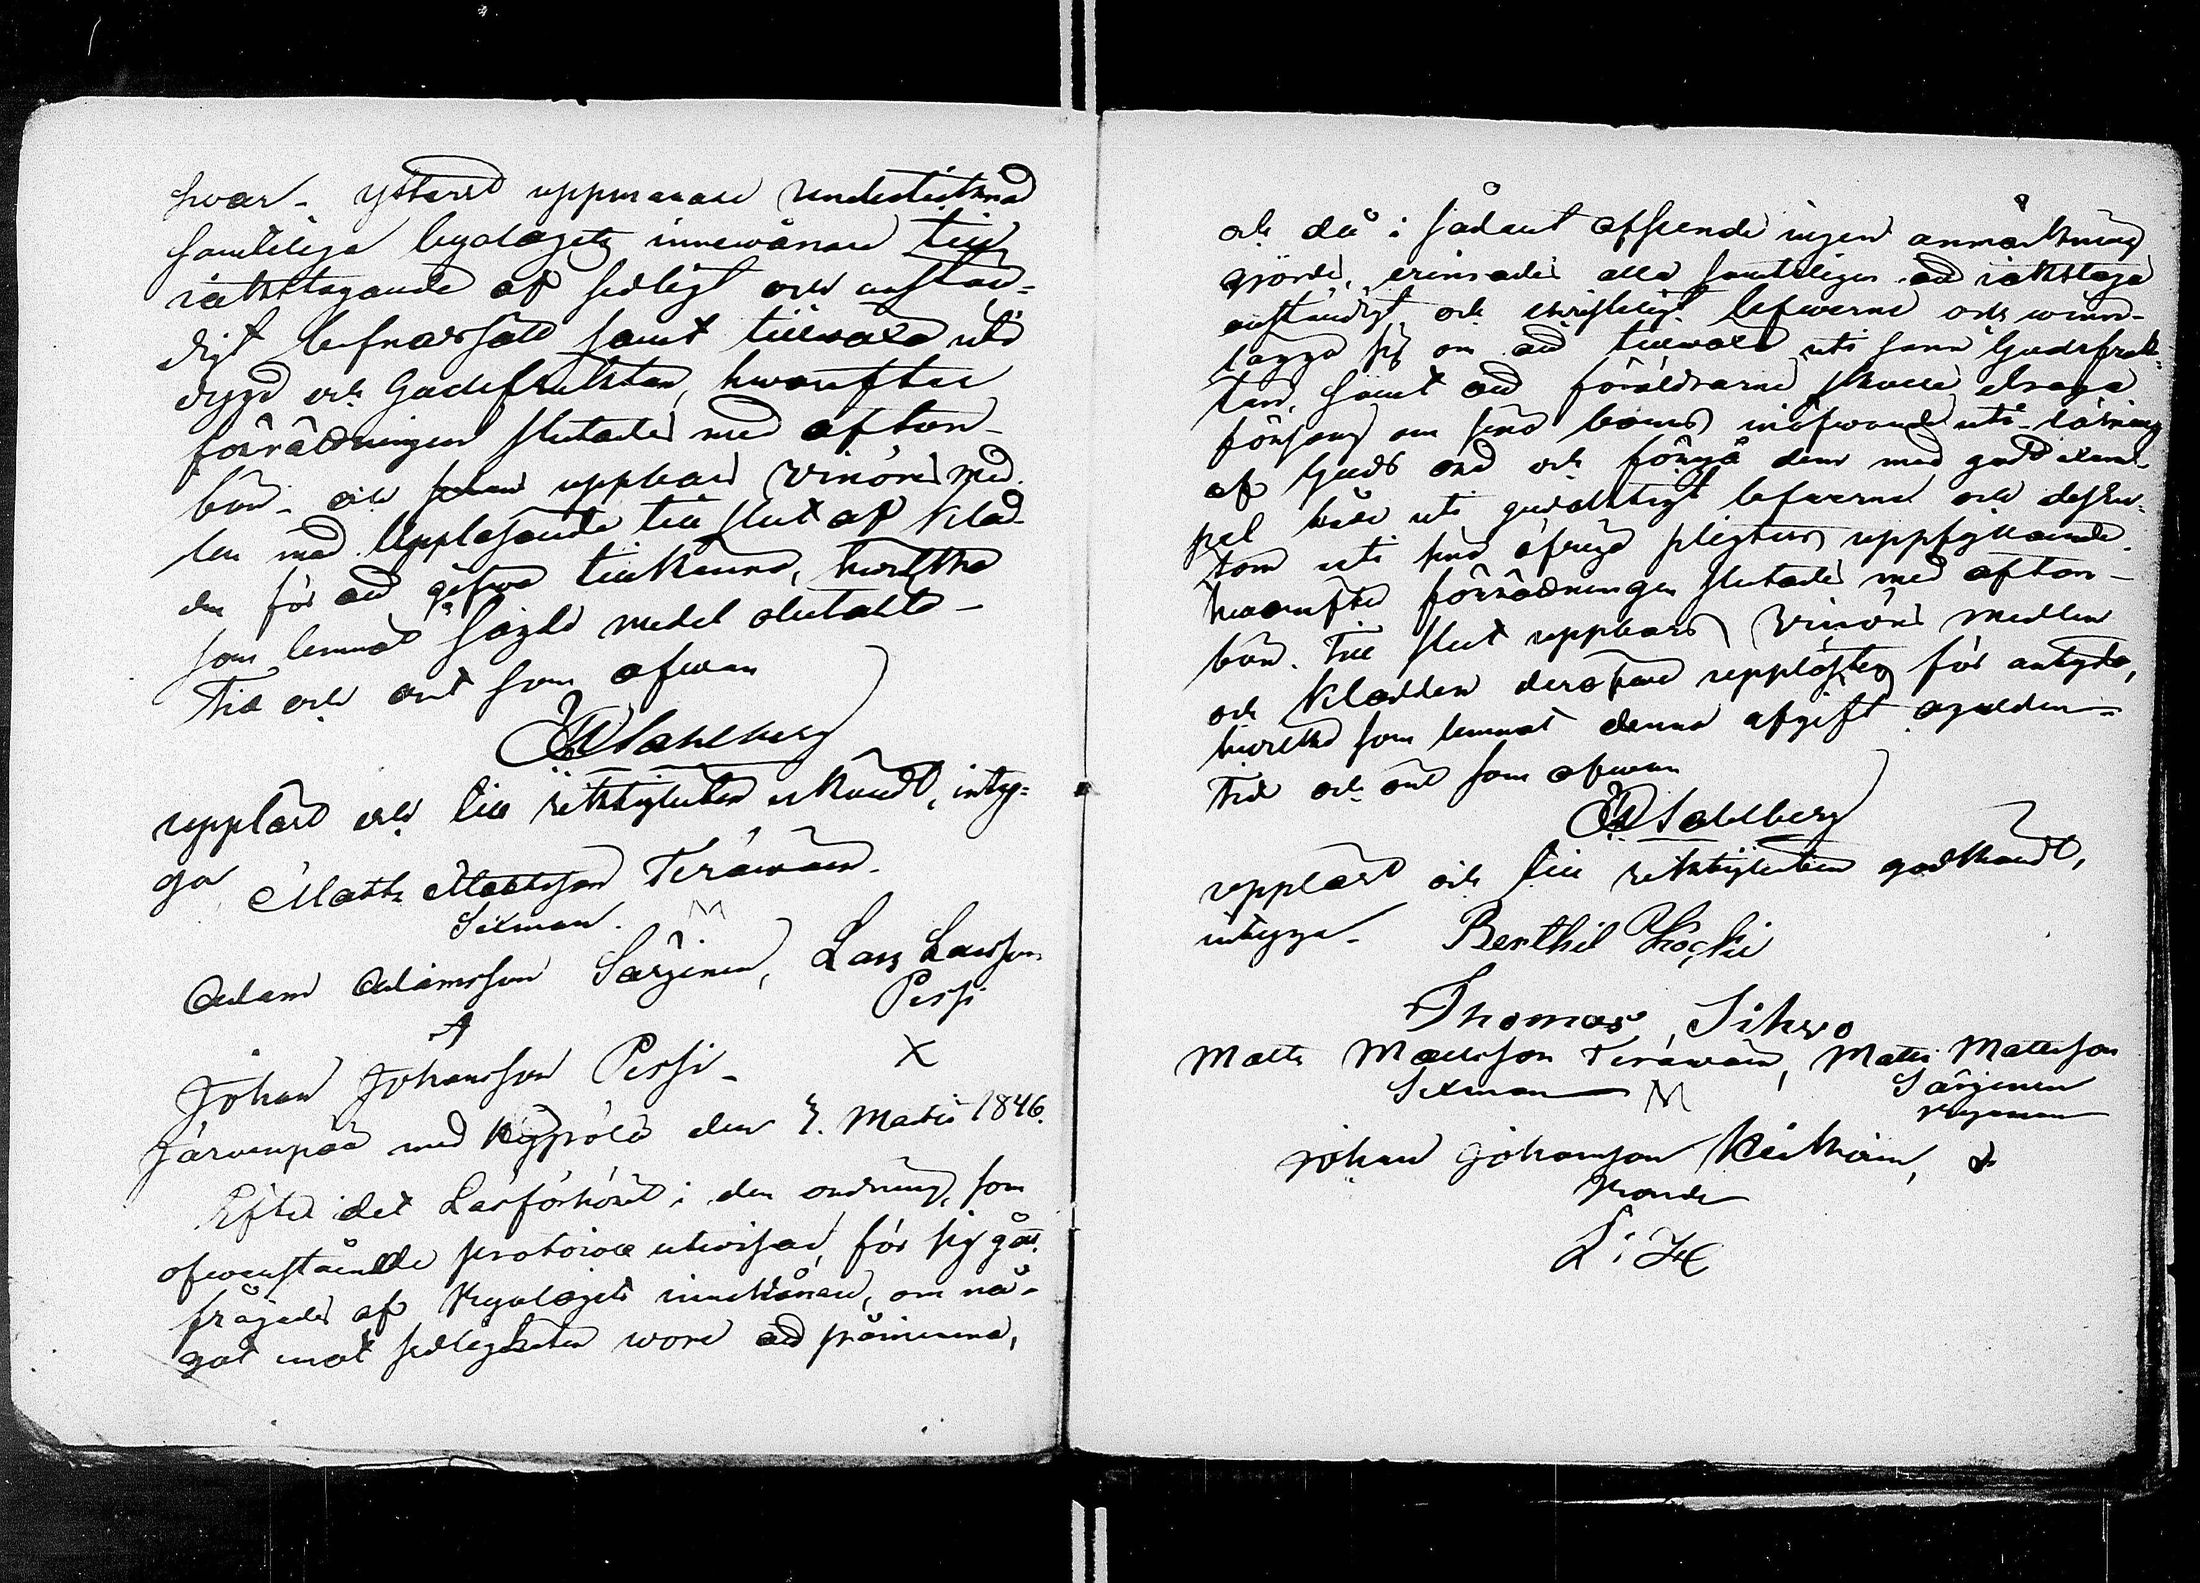 hvar. ytterst uppmanades undertecknad
samtelige byalagets innewånare till
iakttagande af sedligt och anstän-
digt lefnadssätt samt tillwäxa uti
dygd och Gudsfruktan, hwarefter
förrättningen slutades med afton-
bön. och uppbars Vinöres med
len med Uppläsande till slut af Klad-
den för att gifwa tillkänna, hwilka
som lemnat sagde medel obetalte
Tid och ort som ofwan
Wahlberg
uppläst och till riktigheten erkändt, inty-
ga Matts Mattsson Teräwäin.
Sexman.
Adam Adamsson Särginen, Lars Larsson
Pessi
Johan Johansson Pessi X
Järvenpää med Kyyrölä den 7. Martii 1846.
Efter det Läsförhöret i den ordning, som
ofwanstående protocoll utwisar, för sig gått.
frågades af byalagets innewånare, om nå-
got emot sedligheten wore att påminna,
och då i sådant afseende ingen anmärkning
gjordes, erinrades alla samteligen att iakttaga
anständigt och christeligt lefwerne och winn-
lägga sig om att tillwäxa uti sann Gudsfruk-
tan, samt att föräldrarne skulle draga
försorg om sina barns inöfwande uti läsning
af Guds ord och föregå dem med godt exem-
pel både uti gudaktigt lefwerne och dessu-
tom uti sina öfriga pligters uppfyllande.
hwarefter förrättningen slutades med afton-
bön. Till slut uppbars Vinöres medlen
och Kladden deröfwer upplästes för antyda,
hwilka som lemnat denna afgift ogulden
Tid och ort som ofwan
Wahlberg
uppläst och till riktigheten godkändt,
intyga. Berthil
Thomas Sihvo
Matts Mattsson Teräwäin, Matts Mattsson
Sexman M Särginen
byman
Johan Johansson